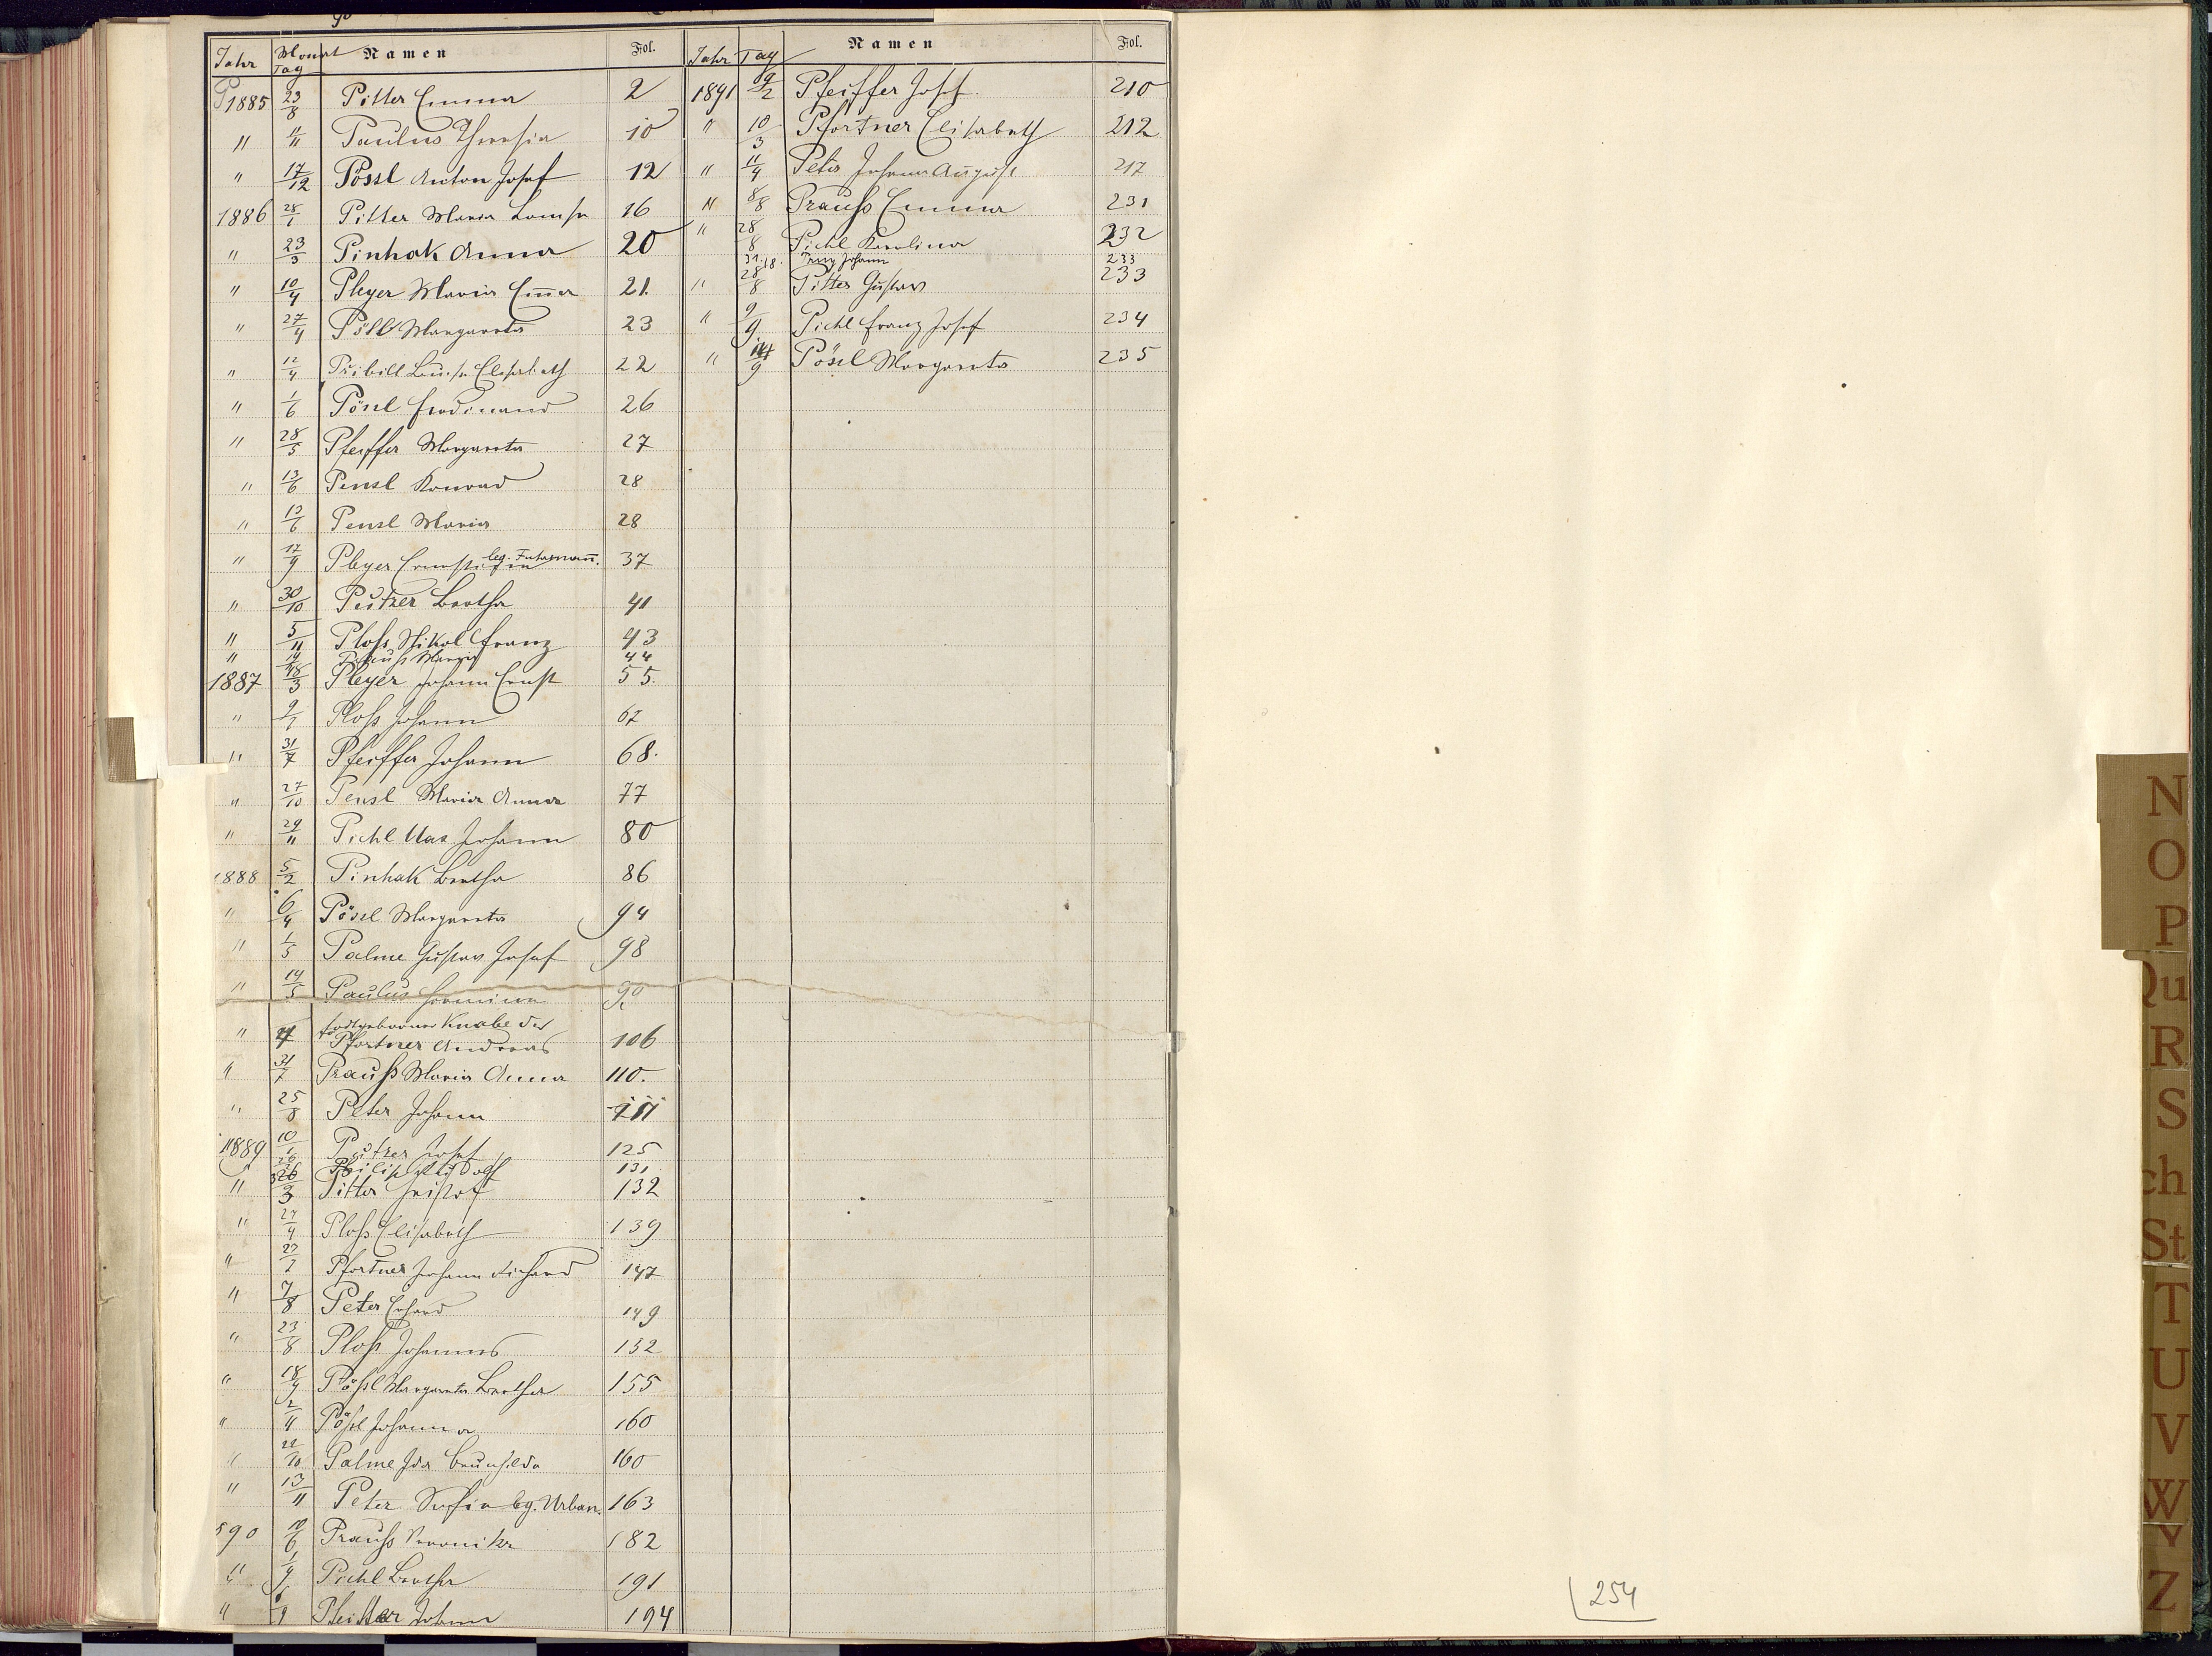 Jahr Monat Tag Namen Fol.
P 1885 23/8 Pitter Emma 2
" 11/11 Paulus Theresia 10
" 17/12 Pössl Anton Josef 12
1886 28/1 Pitter Maria Louise 16
" 23/3 Pinhak Anna 20
" 10/4 Pleyer Maria Em̄a 21.
" 27/4 Pöll Margareta 23
" 12/4 Pribill Luise Elisabeth 22
" 1/6 Pösl Ferdinand 26
" 28/5 Pfeiffer Margareta 27
" 13/6 Pensl Konrad 28
" 13/6 Pensl Maria 28
" 17/9 Pleyer Ernestine leg. Fuhrmañ. 37
" 30/10 Putzer Bertha 41
" 5/11 Ploß Nikol Franz 43
" Prauß Maria 44
1887 18/3 Pleyer Johann Ernst 55.
" 9/7 Ploß Johann 67
" 31/7 Pfeiffer Johann 68.
" 27/10 Pensl Maria Anna 77
" 29/11 Pichl Johann 80
1888 5/2 Pinhak Bertha 86
" 6/4 Pösel Margareta 94
" 1/5 Palme Gustav Josef 98
" 14/5 Paulus Hermine 90
" todtgeborner Knabe der
Pfortner Andreas 106
" 31/7 Prauß Maria Anna 110.
" 25/8 Peter Johann
1889 10/1 Putzer Josef 125
Philip Rudolf 131
" 26/3 Pitter Christof 132
" 27/4 Ploß Elisabeth 139
" 27/7 Pfortner Johann Richard 147
" 7/8 Peter Erhard 149
" 23/8 Ploß Johannes 152
" 18/9 Pößl Margareta Bertha 155
" Pößl Johanna 160
" 22/10 Palme Ida Brunhilda 160
" 13/11 Peter Sofia leg. Urban. 163
890 10/6 Prauß Veronika 182
" 1/9 Pichl Bertha 191
" Pfeiffer Johann 194
Jahr Tag Namen Fol.
1891 9/2 Pfeiffer Josef 210
" 10/3 Pfortner Elisabeth 212
" 11/4 Peter Johann August 217
" 8/8 Prauß Emma 231
" 28/8 Pichl Karolina 232
31./8. Johann 233
" 28/8 Pitter Gustav 233
" 9/9 Pichl Franz Josef 234
" 14/9 Pösel Margareta 235
N
O
P
Qu
R
S
ch
St
T
U
V
W
Y
Z
254